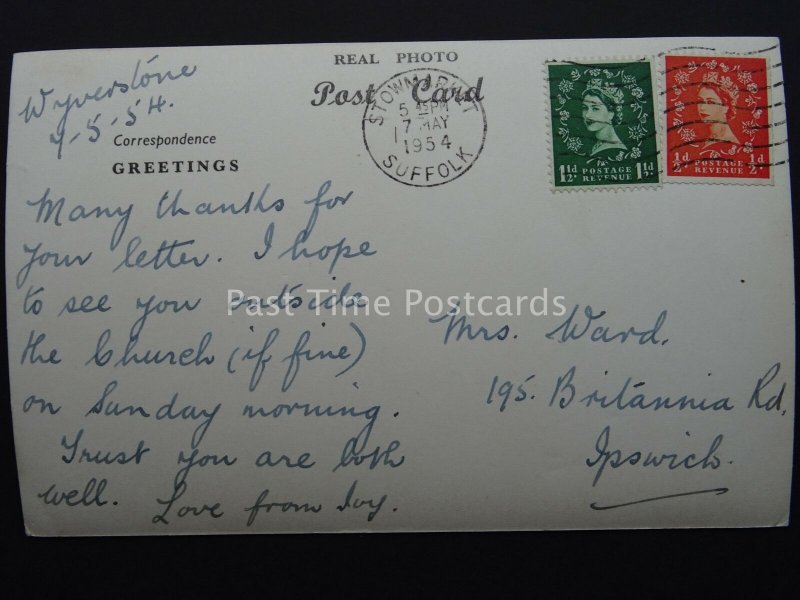 REAL PHOTO
Post Card
Wyverstone
7-5-54.
Correspondence
GREETINGS
STOWMARKET
5 PM
17 MAY
1954
SUFFOLK
1½d POSTAGE REVENUE 1½d
½d POSTAGE REVENUE ½d
Many thanks for
your letter. I hope
to see you outside
the Church (if fine)
on Sunday morning.
Trust you are both
well. Love from Ivy.
Mrs. Ward,
195. Britannia Rd,
Ipswich.
Past Time Postcards